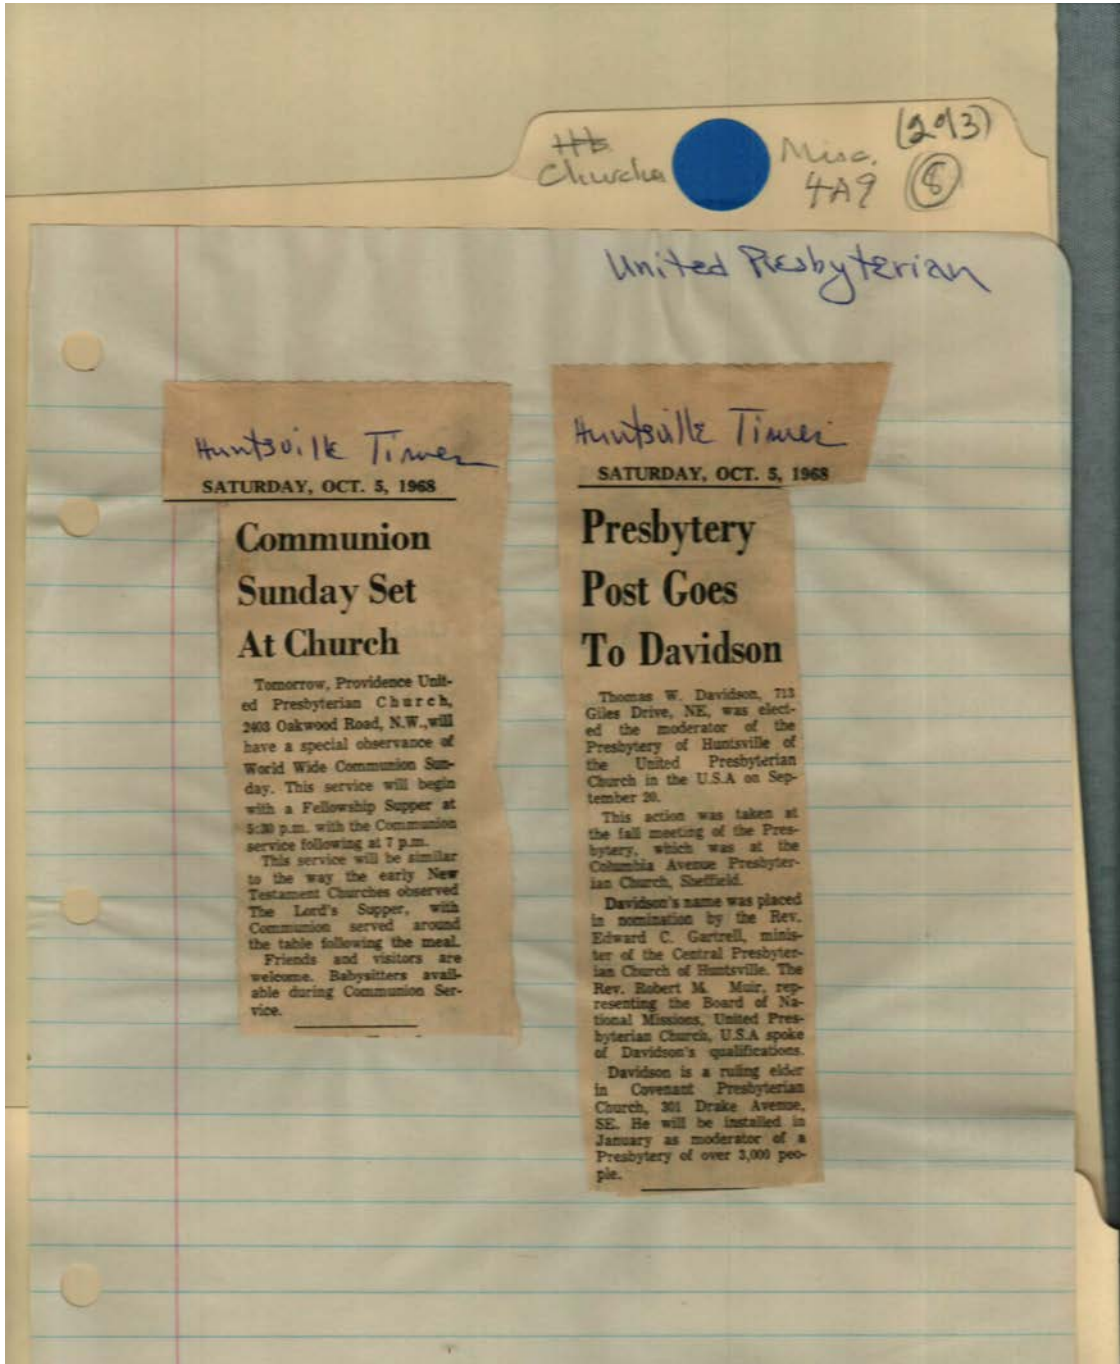 Churches
Misc. (2 of 3)
4A9 8
United Presbyterian
Huntsville Times
SATURDAY, OCT. 5, 1968
Communion
Sunday Set
At Church
Tomorrow, Providence Unit-
ed Presbyterian Church,
2403 Oakwood Road, N.W.,will
have a special observance of
World Wide Communion Sun-
day. This service will begin
with a Fellowship Supper at
5:30 p.m. with the Communion
service following at 7 p.m.
This service will be similar
to the way the early New
Testament Churches observed
The Lord's Supper, with
Communion served around
the table following the meal.
Friends and visitors are
welcome. Babysitters avail-
able during Communion Ser-
vice.
Huntsville Times
SATURDAY, OCT. 5, 1968
Presbytery
Post Goes
To Davidson
Thomas W. Davidson, 713
Giles Drive, NE, was elect-
ed the moderator of the
Presbytery of Huntsville of
the United Presbyterian
Church in the U.S.A on Sep-
tember 20.
This action was taken at
the fall meeting of the Pres-
bytery, which was at the
Columbia Avenue Presbyter-
ian Church, Sheffield.
Davidson's name was placed
in nomination by the Rev.
Edward C. Gartrell, minis-
ter of the Central Presbyter-
ian Church of Huntsville. The
Rev. Robert M. Muir, rep-
resenting the Board of Na-
tional Missions, United Pres-
byterian Church, U.S.A spoke
of Davidson's qualifications.
Davidson is a ruling elder
in Covenant Presbyterian
Church, 301 Drake Avenue,
SE. He will be installed in
January as moderator of a
Presbytery of over 3,000 peo-
ple.